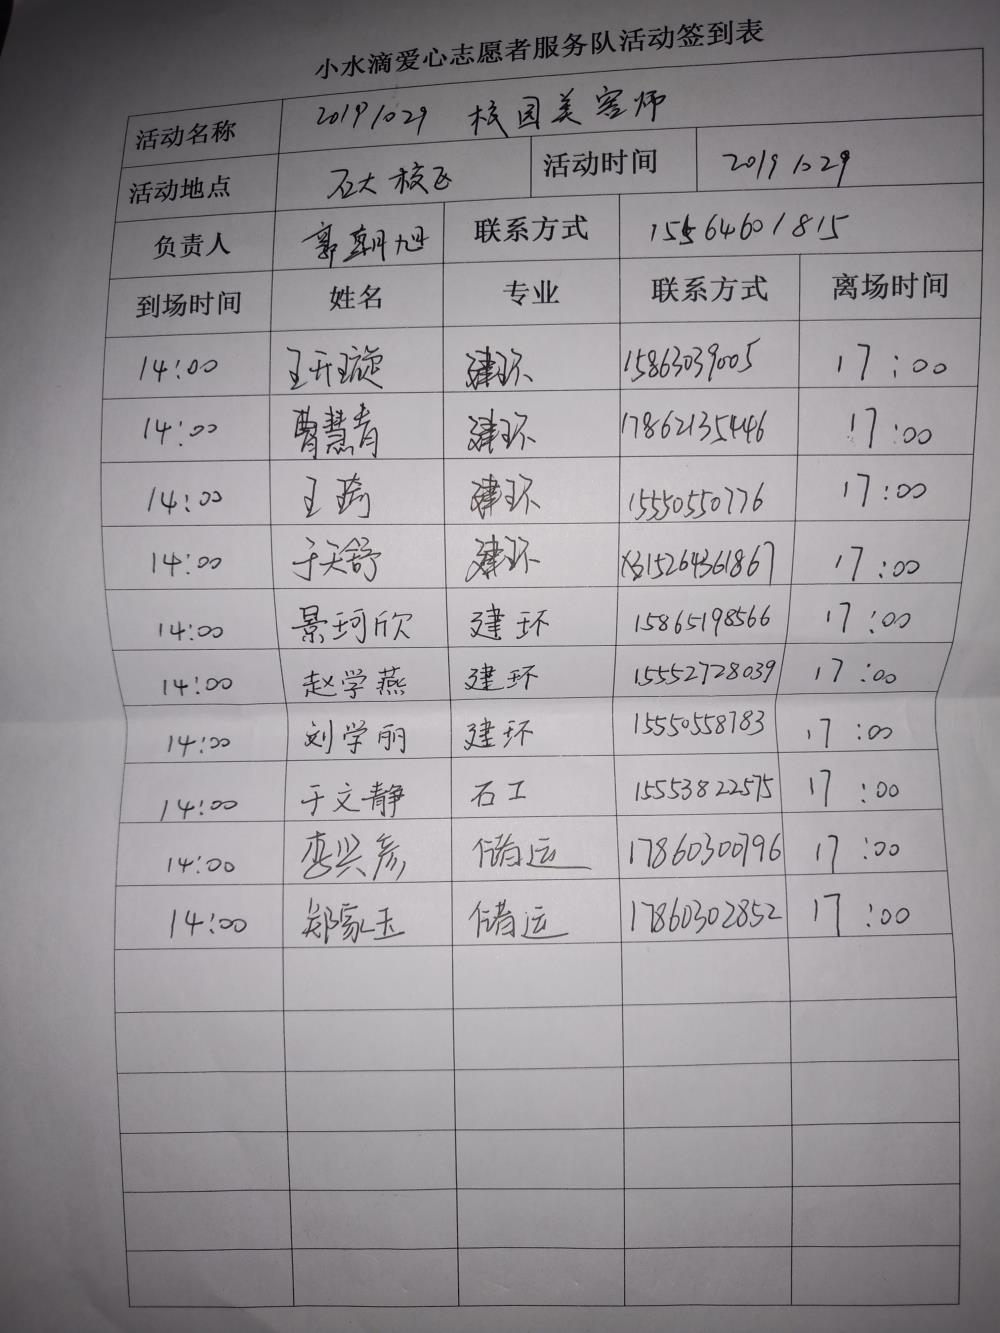 小水滴爱心志愿者服务队活动签到表
活动名称 20191029 校园美容师
活动地点 石大校区 活动时间 20191029
负责人 郭朝旭 联系方式 15564601815
到场时间 姓名 专业 联系方式 离场时间
14:00 王玨璇 建环 15863039005 17:00
14:00 曹慧青 建环 17862135446 17:00
14:00 王琦 建环 15550550776 17:00
14:00 于天舒 建环 15264361867 17:00
14:00 景珂欣 建环 15865198566 17:00
14:00 赵学燕 建环 15552728039 17:00
14:00 刘学丽 建环 15550558783 17:00
14:00 于文静 石工 15553822575 17:00
14:00 李兴彦 储运 17860300796 17:00
14:00 郑家玉 储运 17860302852 17:00